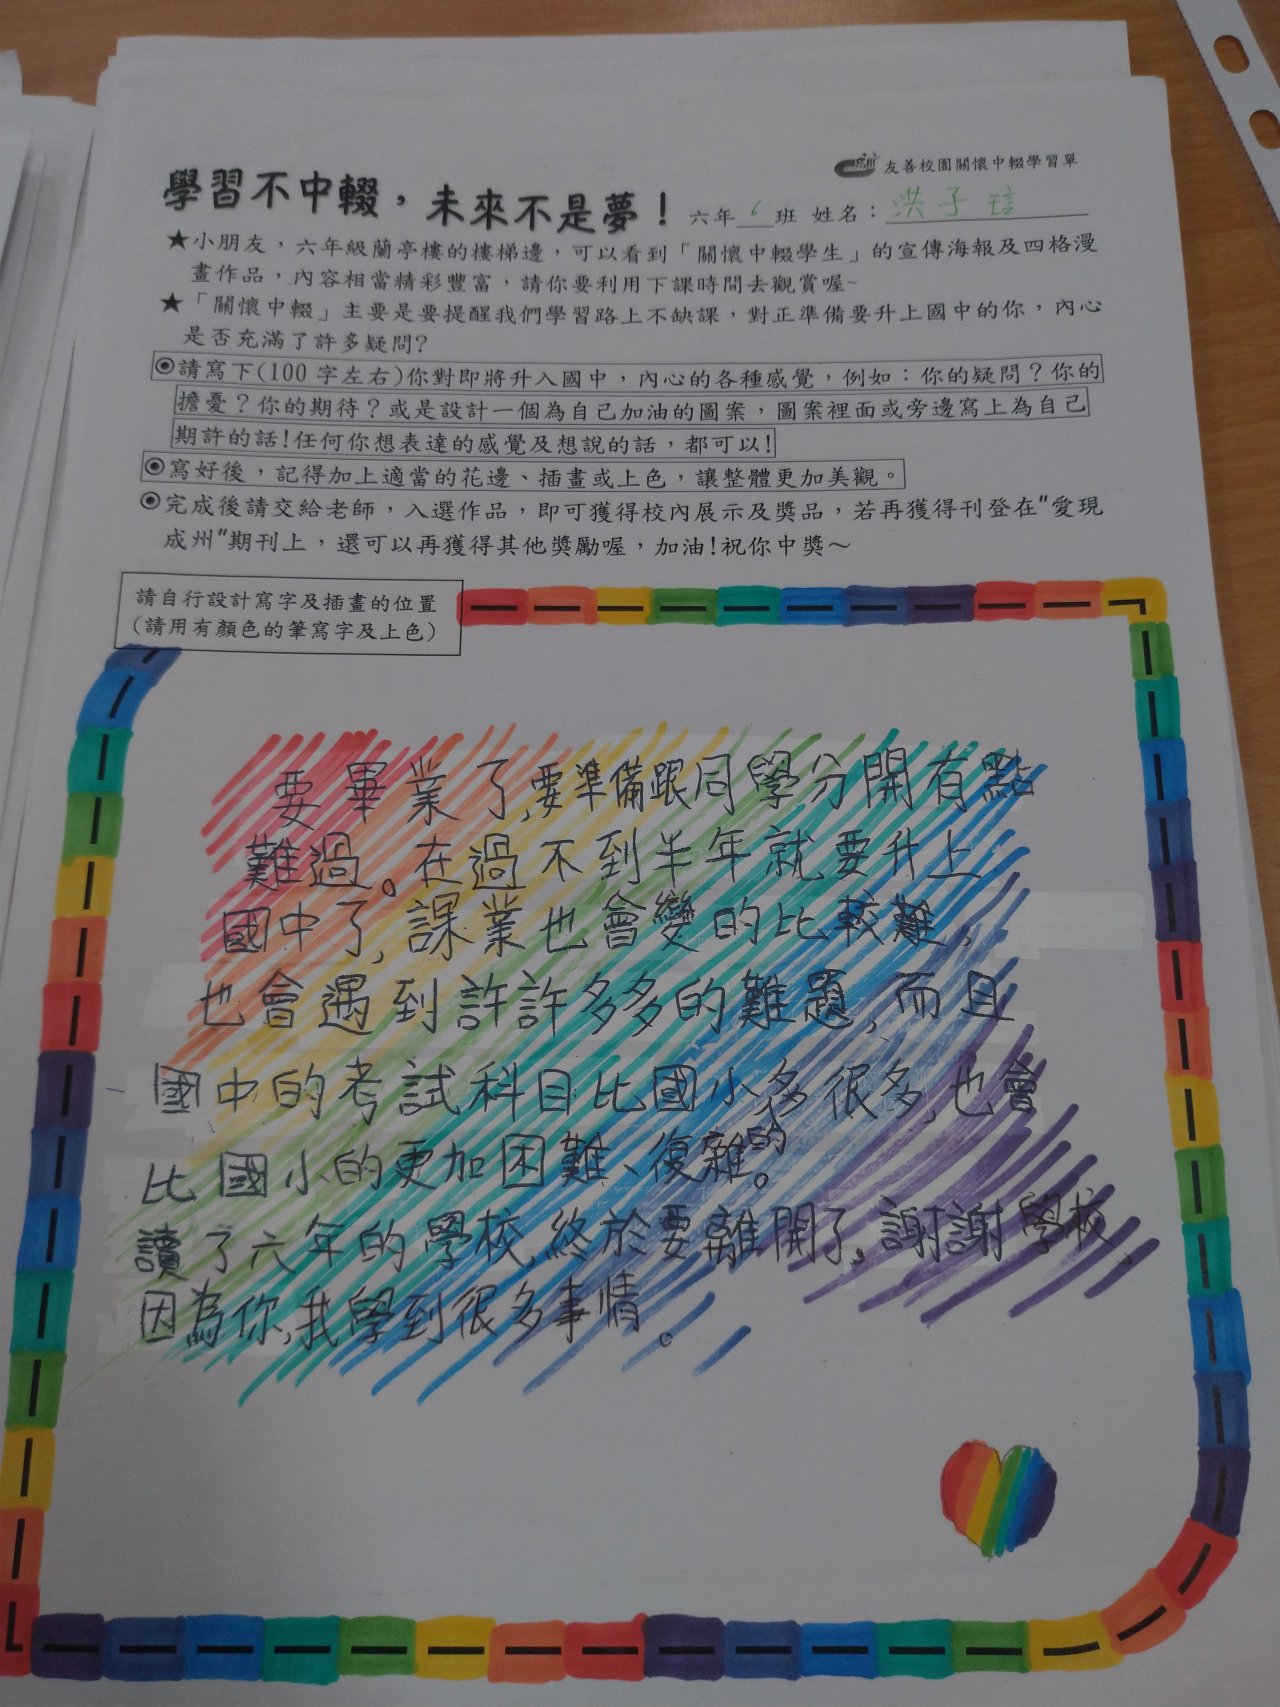 友善校園關懷中輟學習單
學習不中輟，未來不是夢！ 六年6班 姓名：洪子瑄
★小朋友，六年級蘭亭樓的樓梯邊，可以看到「關懷中輟學生」的宣傳海報及四格漫
畫作品，內容相當精彩豐富，請你要利用下課時間去觀賞喔~
★「關懷中輟」主要是要提醒我們學習路上不缺課，對正準備要升上國中的你，內心
是否充滿了許多疑問？
◉請寫下(100字左右)你對即將升入國中，內心的各種感覺，例如：你的疑問？你的
擔憂？你的期待？或是設計一個為自己加油的圖案，圖案裡面或旁邊寫上為自己
期許的話!任何你想表達的感覺及想說的話，都可以!
◉寫好後，記得加上適當的花邊、插畫或上色，讓整體更加美觀。
◉完成後請交給老師，入選作品，即可獲得校內展示及獎品，若再獲得刊登在"愛現
成州"期刊上，還可以再獲得其他獎勵喔，加油!祝你中獎～
請自行設計寫字及插畫的位置
(請用有顏色的筆寫字及上色)
要畢業了,要準備跟同學分開有點
難過。在過不到半年就要升上
國中了,課業也會變的比較難,
也會遇到許許多多的難題,而且
國中的考試科目比國小多很多,也會
比國小的更加困難、復雜的。
讀了六年的學校,終於要離開了,謝謝學校,
因為你,我學到很多事情。